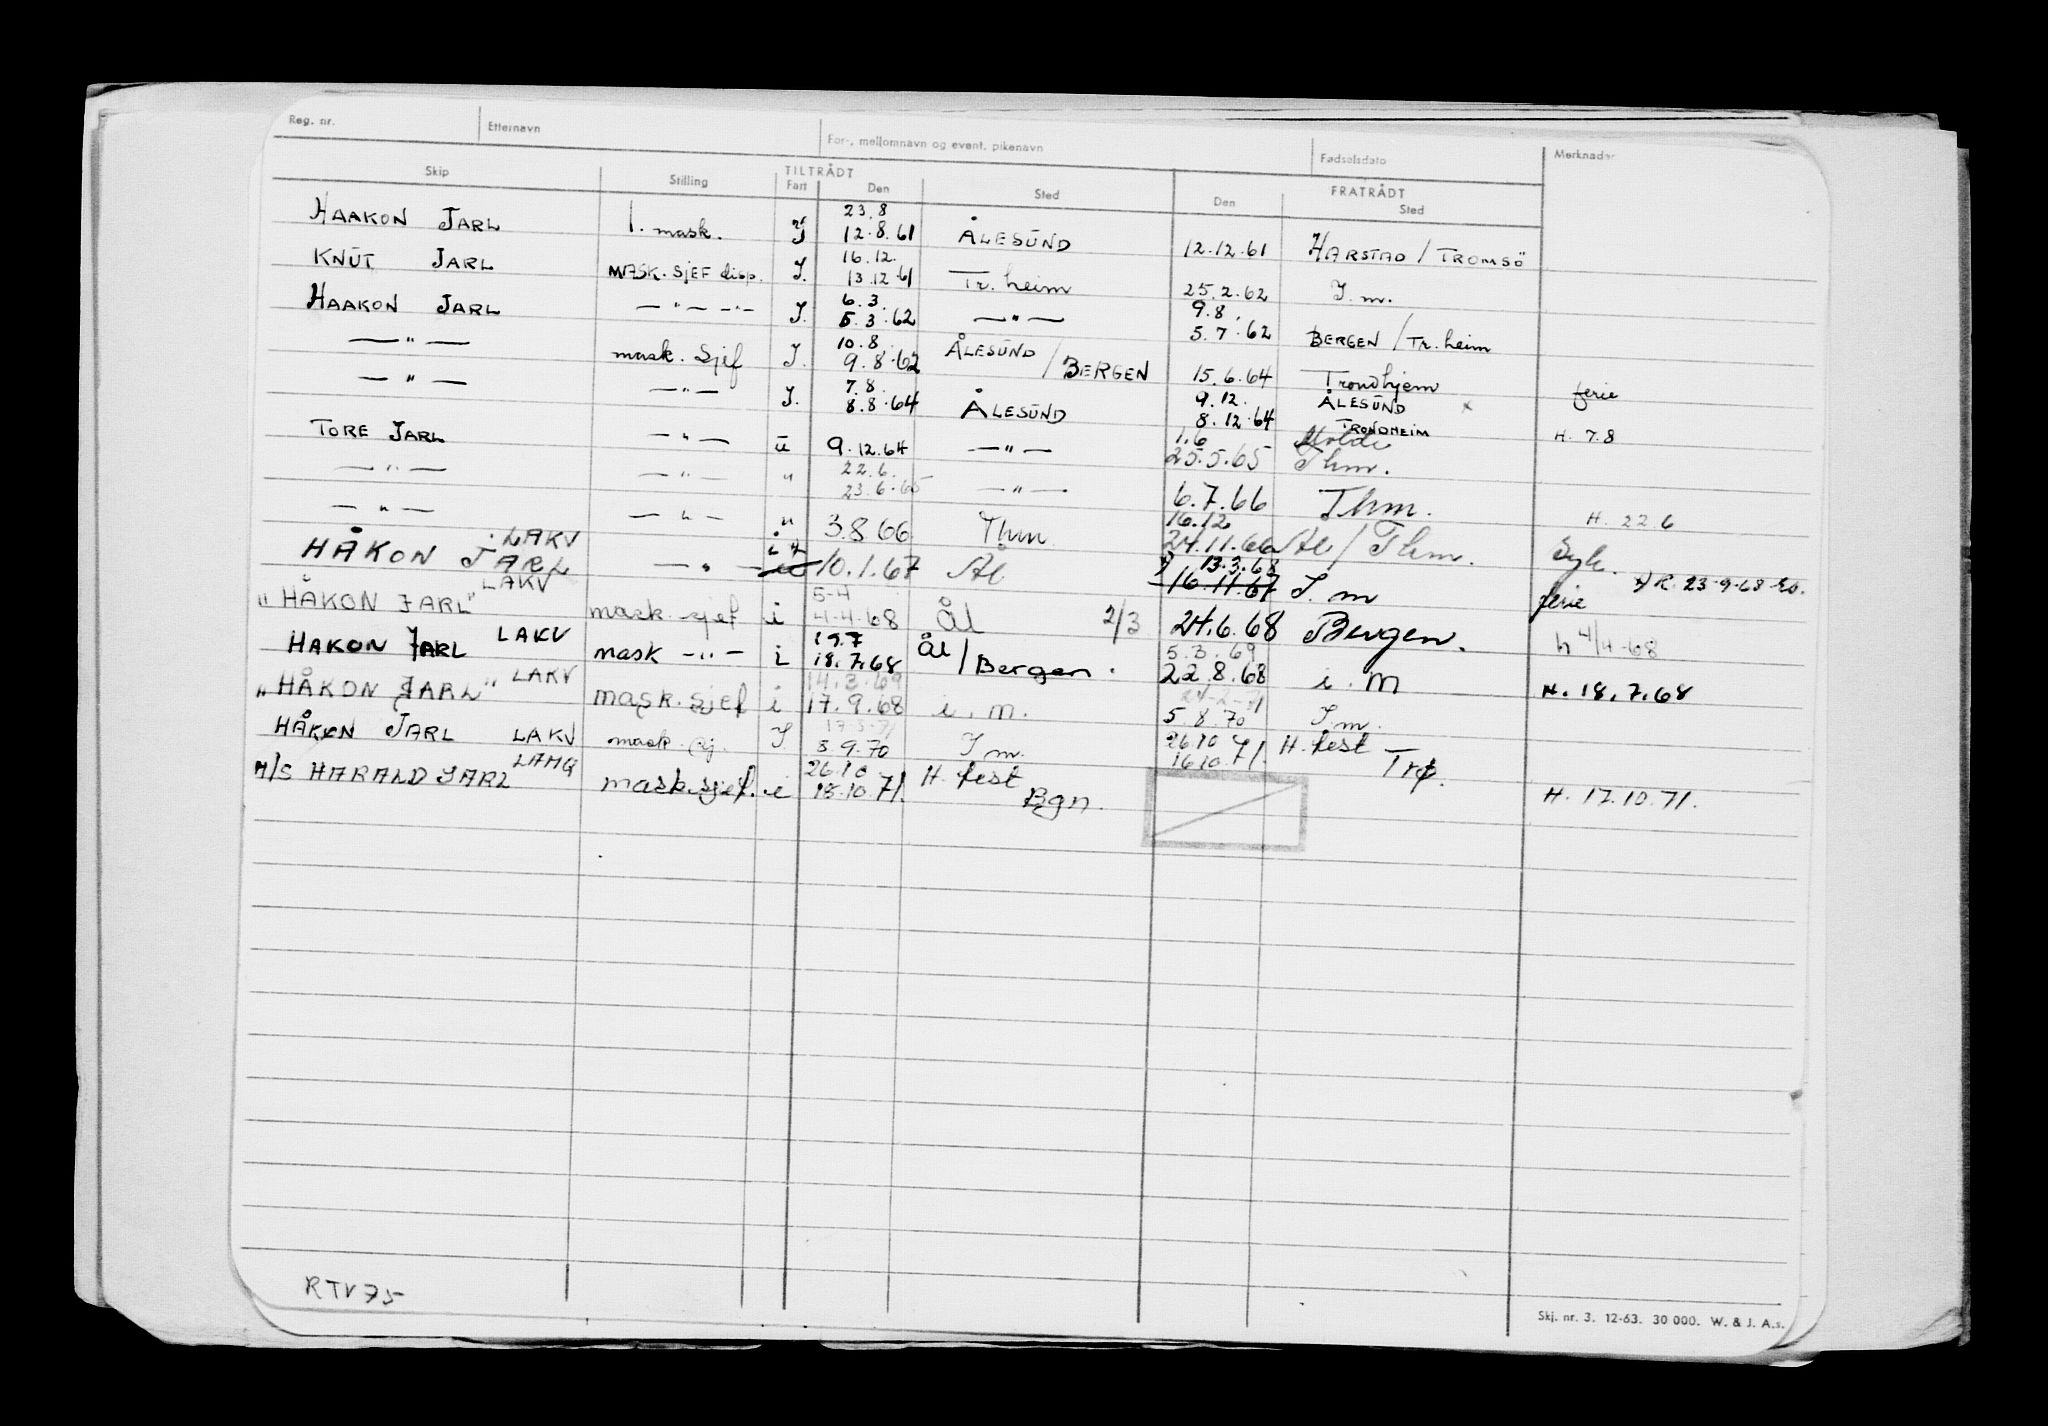 Reg. nr. Etternavn For-, mellomnavn og event. pikenavn Fødselsdato Merknader
TILTRÅDT FRATRÅDT
Skip Stilling Fart Den Sted Den Sted
23.8
HAAKON JARL 1. mask. I 12.8.61 ÅLESUND 12.12.61 HARSTAD / TROMSÖ
16.12.
KNUT JARL MASK. SJEF disp. I. 13.12.61 Tr. heim 25.2.62 I. m.
6.3. 9.8.
HAAKON JARL — " — — " — I. 5.3.62 — " — 5.7.62 BERGEN / Tr. heim
10.8.
— " — mask. Sjef I. 9.8.62 ÅLESUND / BERGEN 15.6.64 Trondhjem ferie
7.8. 9.12. ÅLESUND x
— " — — " — I. 8.8.64 ÅLESUND 8.12.64 TRONDHEIM H. 7.8
1.6 Molde
TORE JARL — " — u 9.12.64 — " — 25.5.65 Thm.
22.6.
— " — — " — " 23.6.65 — " — 6.7.66 Thm. H. 22 6
16.12
— " — — " — " 3.8 66 Thm 24.11.66 Ål / Thm. Syk.
LAKV 13.3.68 x) R. 23-9-68
HÅKON JARL — " — i 10.1.67 Ål x) 16.11.67 I. m ferie
LAKV 5-4
"HÅKON JARL" mask. sjef i 4-4-68 Ål 2/3 24.6.68 Bergen. h 4/4-68
LAKV 19.7 5.3.69
HAKON JARL mask — " — i 18.7.68 ål / Bergen. 22.8.68 i. M H. 18.7.68
LAKV 14.3.69 24-2-71
"HÅKON JARL" mask. sjef i 17.9.68 i. m. 5.8.70 I. m.
17-3-71 26.10
HÅKON JARL LAKV mask. sj. I 3.9.70 I m. 16.10.71. H. fest Trø.
LAHQ 26.10
M/S HARALD JARL mask.sjef. i 18.10.71. H. fest Bgn. H. 17.10.71.
RTV 75
Skj. nr. 3. 12-63. 30 000. W. & J. A.s.